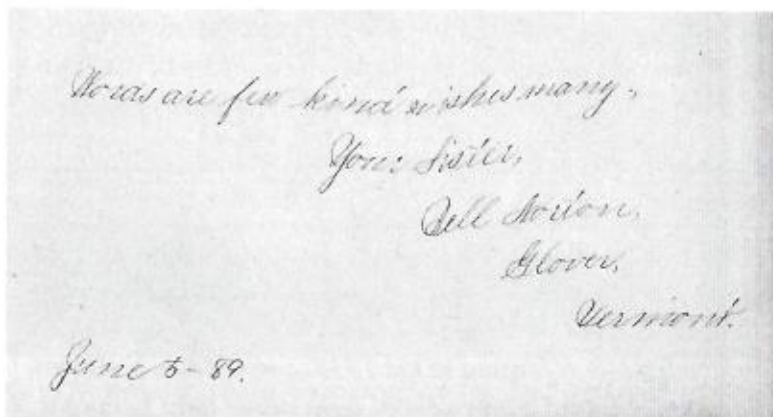 Words are few kind wishes many,
Your Sister,
Dell Norton,
Glover,
Vermont.
June 5-89.